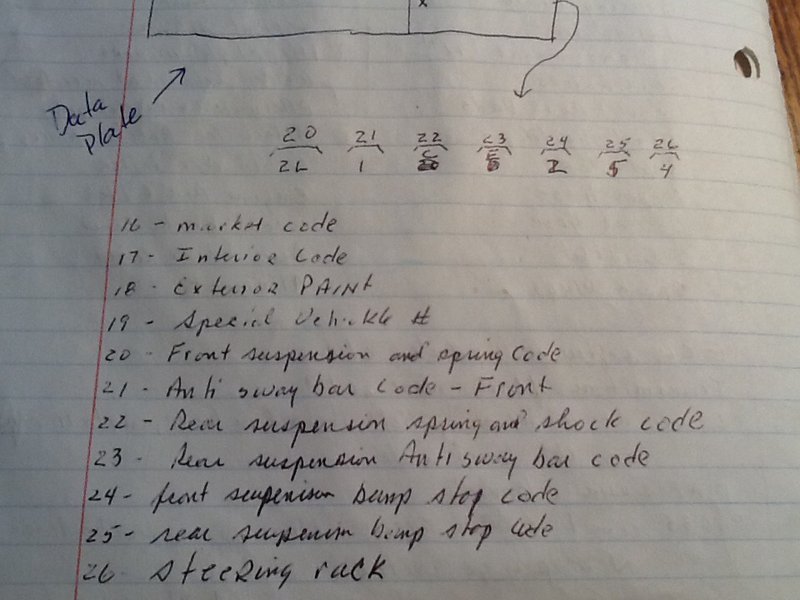 x
Data
Plate
20 21 22 23 24 25 26
2L 1 C E 2 5 4
16 - market code
17 - Interior Code
18 - Exterior PAINT
19 - Special Vehickle #
20 - Front suspension and spring code
21 - Anti sway bar code - Front
22 - Rear suspension spring and shock code
23 - Rear suspension Anti sway bar code
24 - front suspenison bump stop code
25 - rear suspenison bump stop code
26 - steering rack